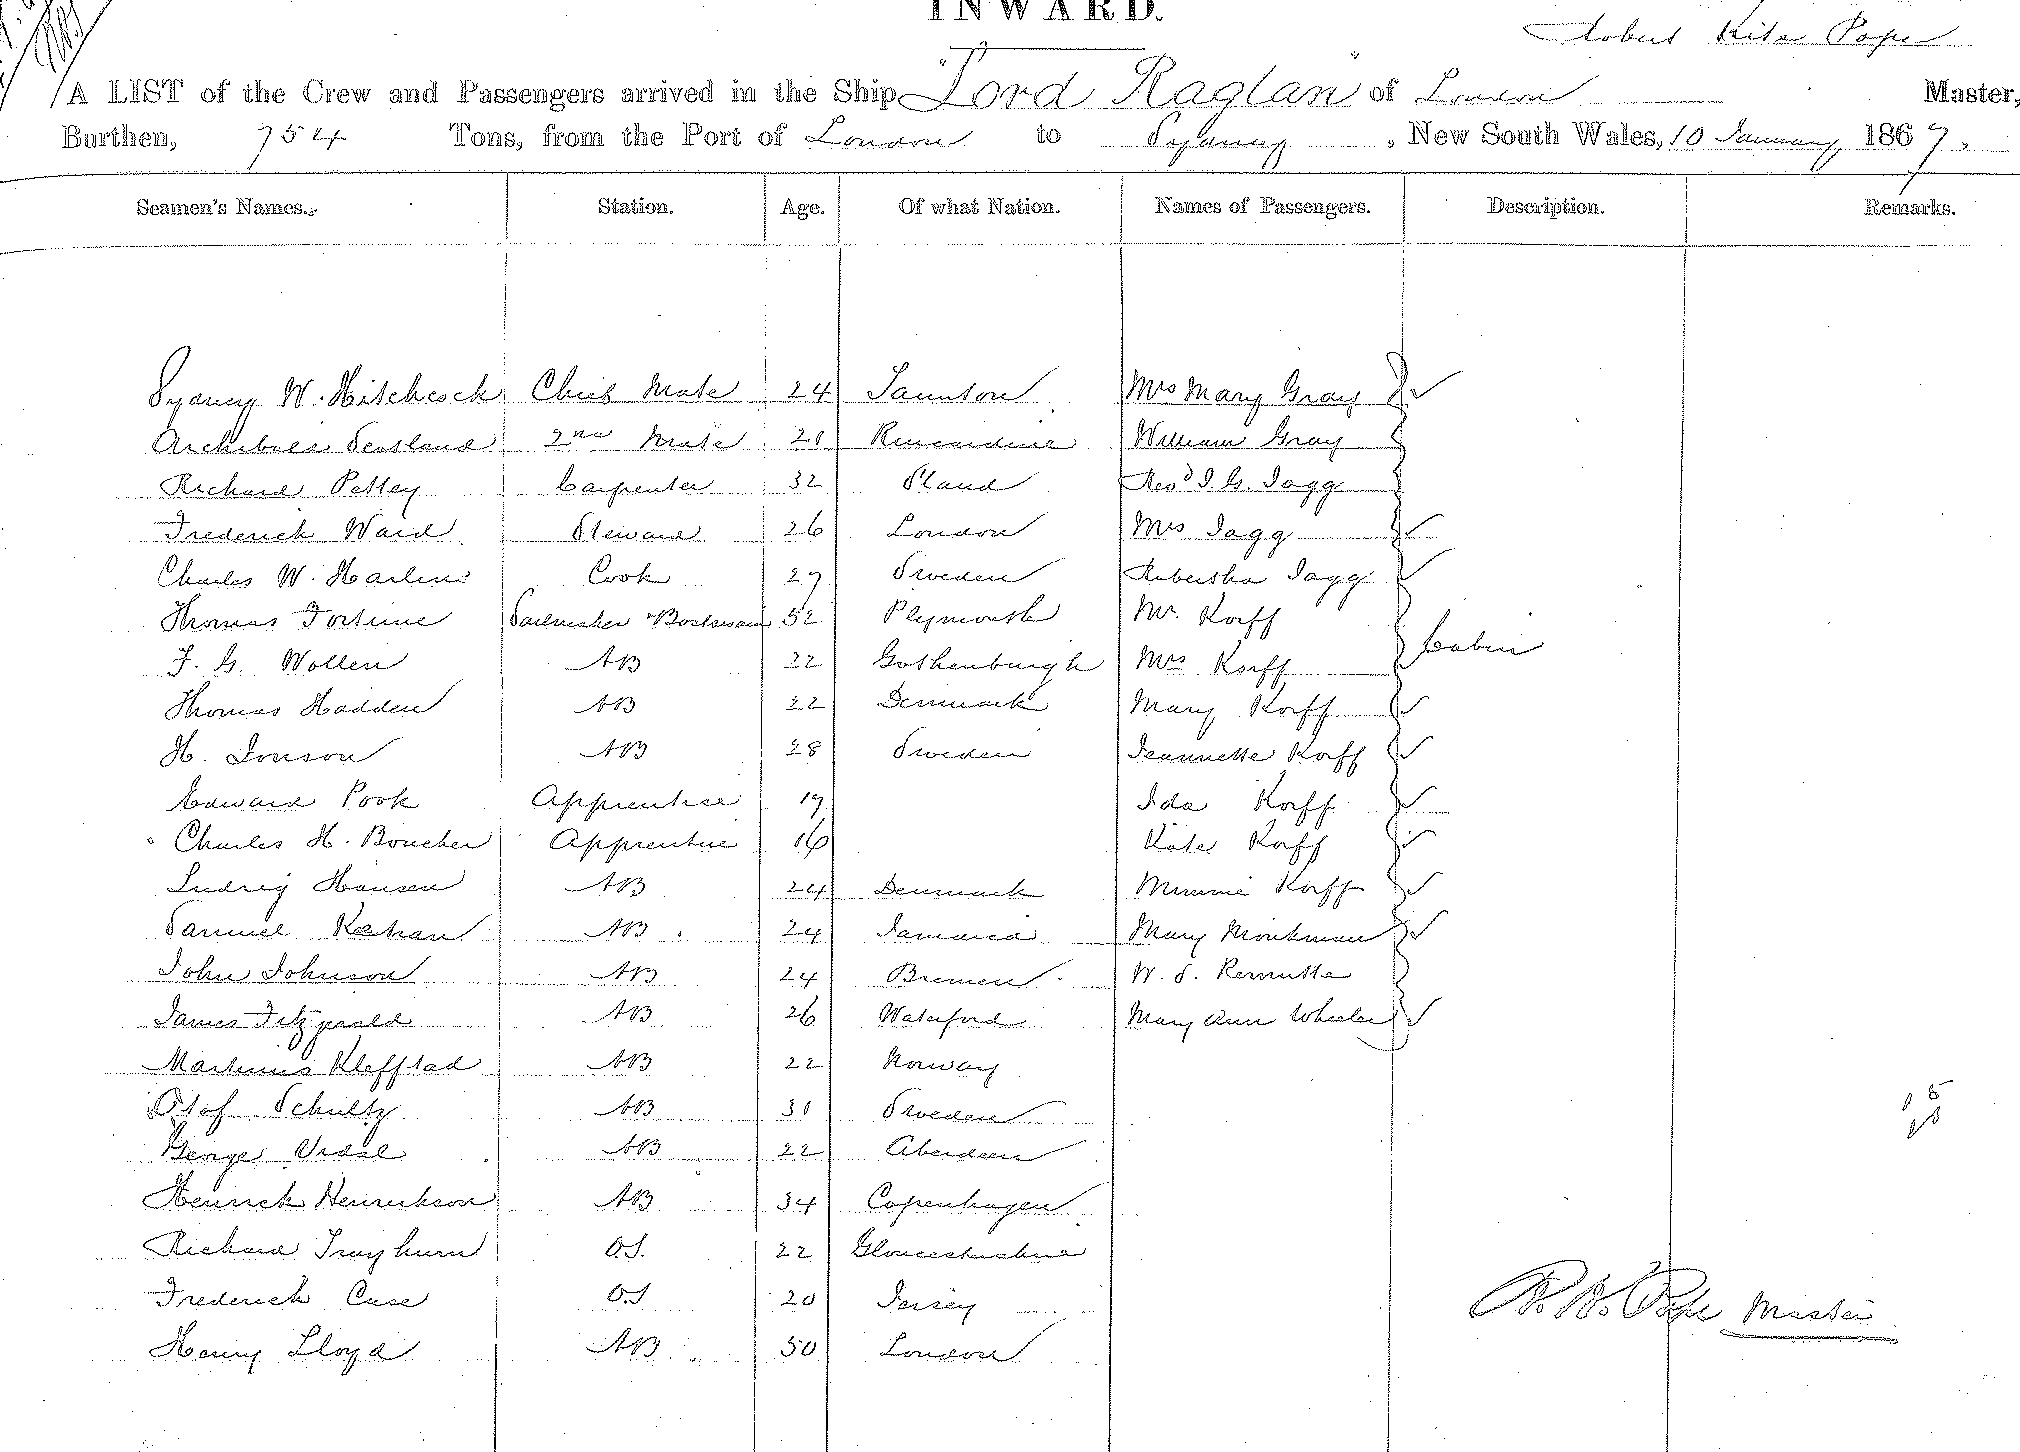 INWARD.
Robert Kite Pope
A LIST of the Crew and Passengers arrived in the Ship "Lord Raglan" of London Master,
Burthen, 754 Tons, from the Port of London to Sydney, New South Wales, 10 January 1867.
Seamen's Names. Station. Age. Of what Nation. Names of Passengers. Description. Remarks.
Sydney W. Hitchcock Chief Mate 24 Taunton Mrs Mary Gray
Archibald Scotland 2nd Mate 21 Kincardine William Gray
Richard Pettey Carpenter 32 Revd I. G. Jagg
Frederick Ward Steward 26 London Mrs Jagg
Charles W. Harlin Cook 27 Sweden Jagg
Thomas Fortune Sailmaker & Boatswain 52 Plymouth Mr. Korff
F. G. Wollen AB 22 Gothenburgh Mrs Korff Cabin
Thomas Hadden AB 22 Denmark Mary Korff
H. Jonson AB 28 Sweden Jeannette Korff
Edward Pook Apprentice 17 Ida Korff
Charles H. Boucher Apprentice 16 Kate Korff
Ludvig Hansen AB 24 Denmark Minnie Korff
Samuel AB 24 Jamaica Mary Monkman
John Johnson AB 24 Bremen W. S.
James Fitzgerald AB 26 Waterford Mary Ann Wheeler
Martinus Kleffstad AB 22 Norway
Olof Schultz AB 31 Sweden
George Vidal AB 22 Aberdeen
Henrick Henrickson AB 34 Copenhagen
Richard Trayhurn O.S. 22 Gloucestershire
Frederick Case O.S 20 Jersey
R. K. Pope Master
Henry Lloyd AB 50 London